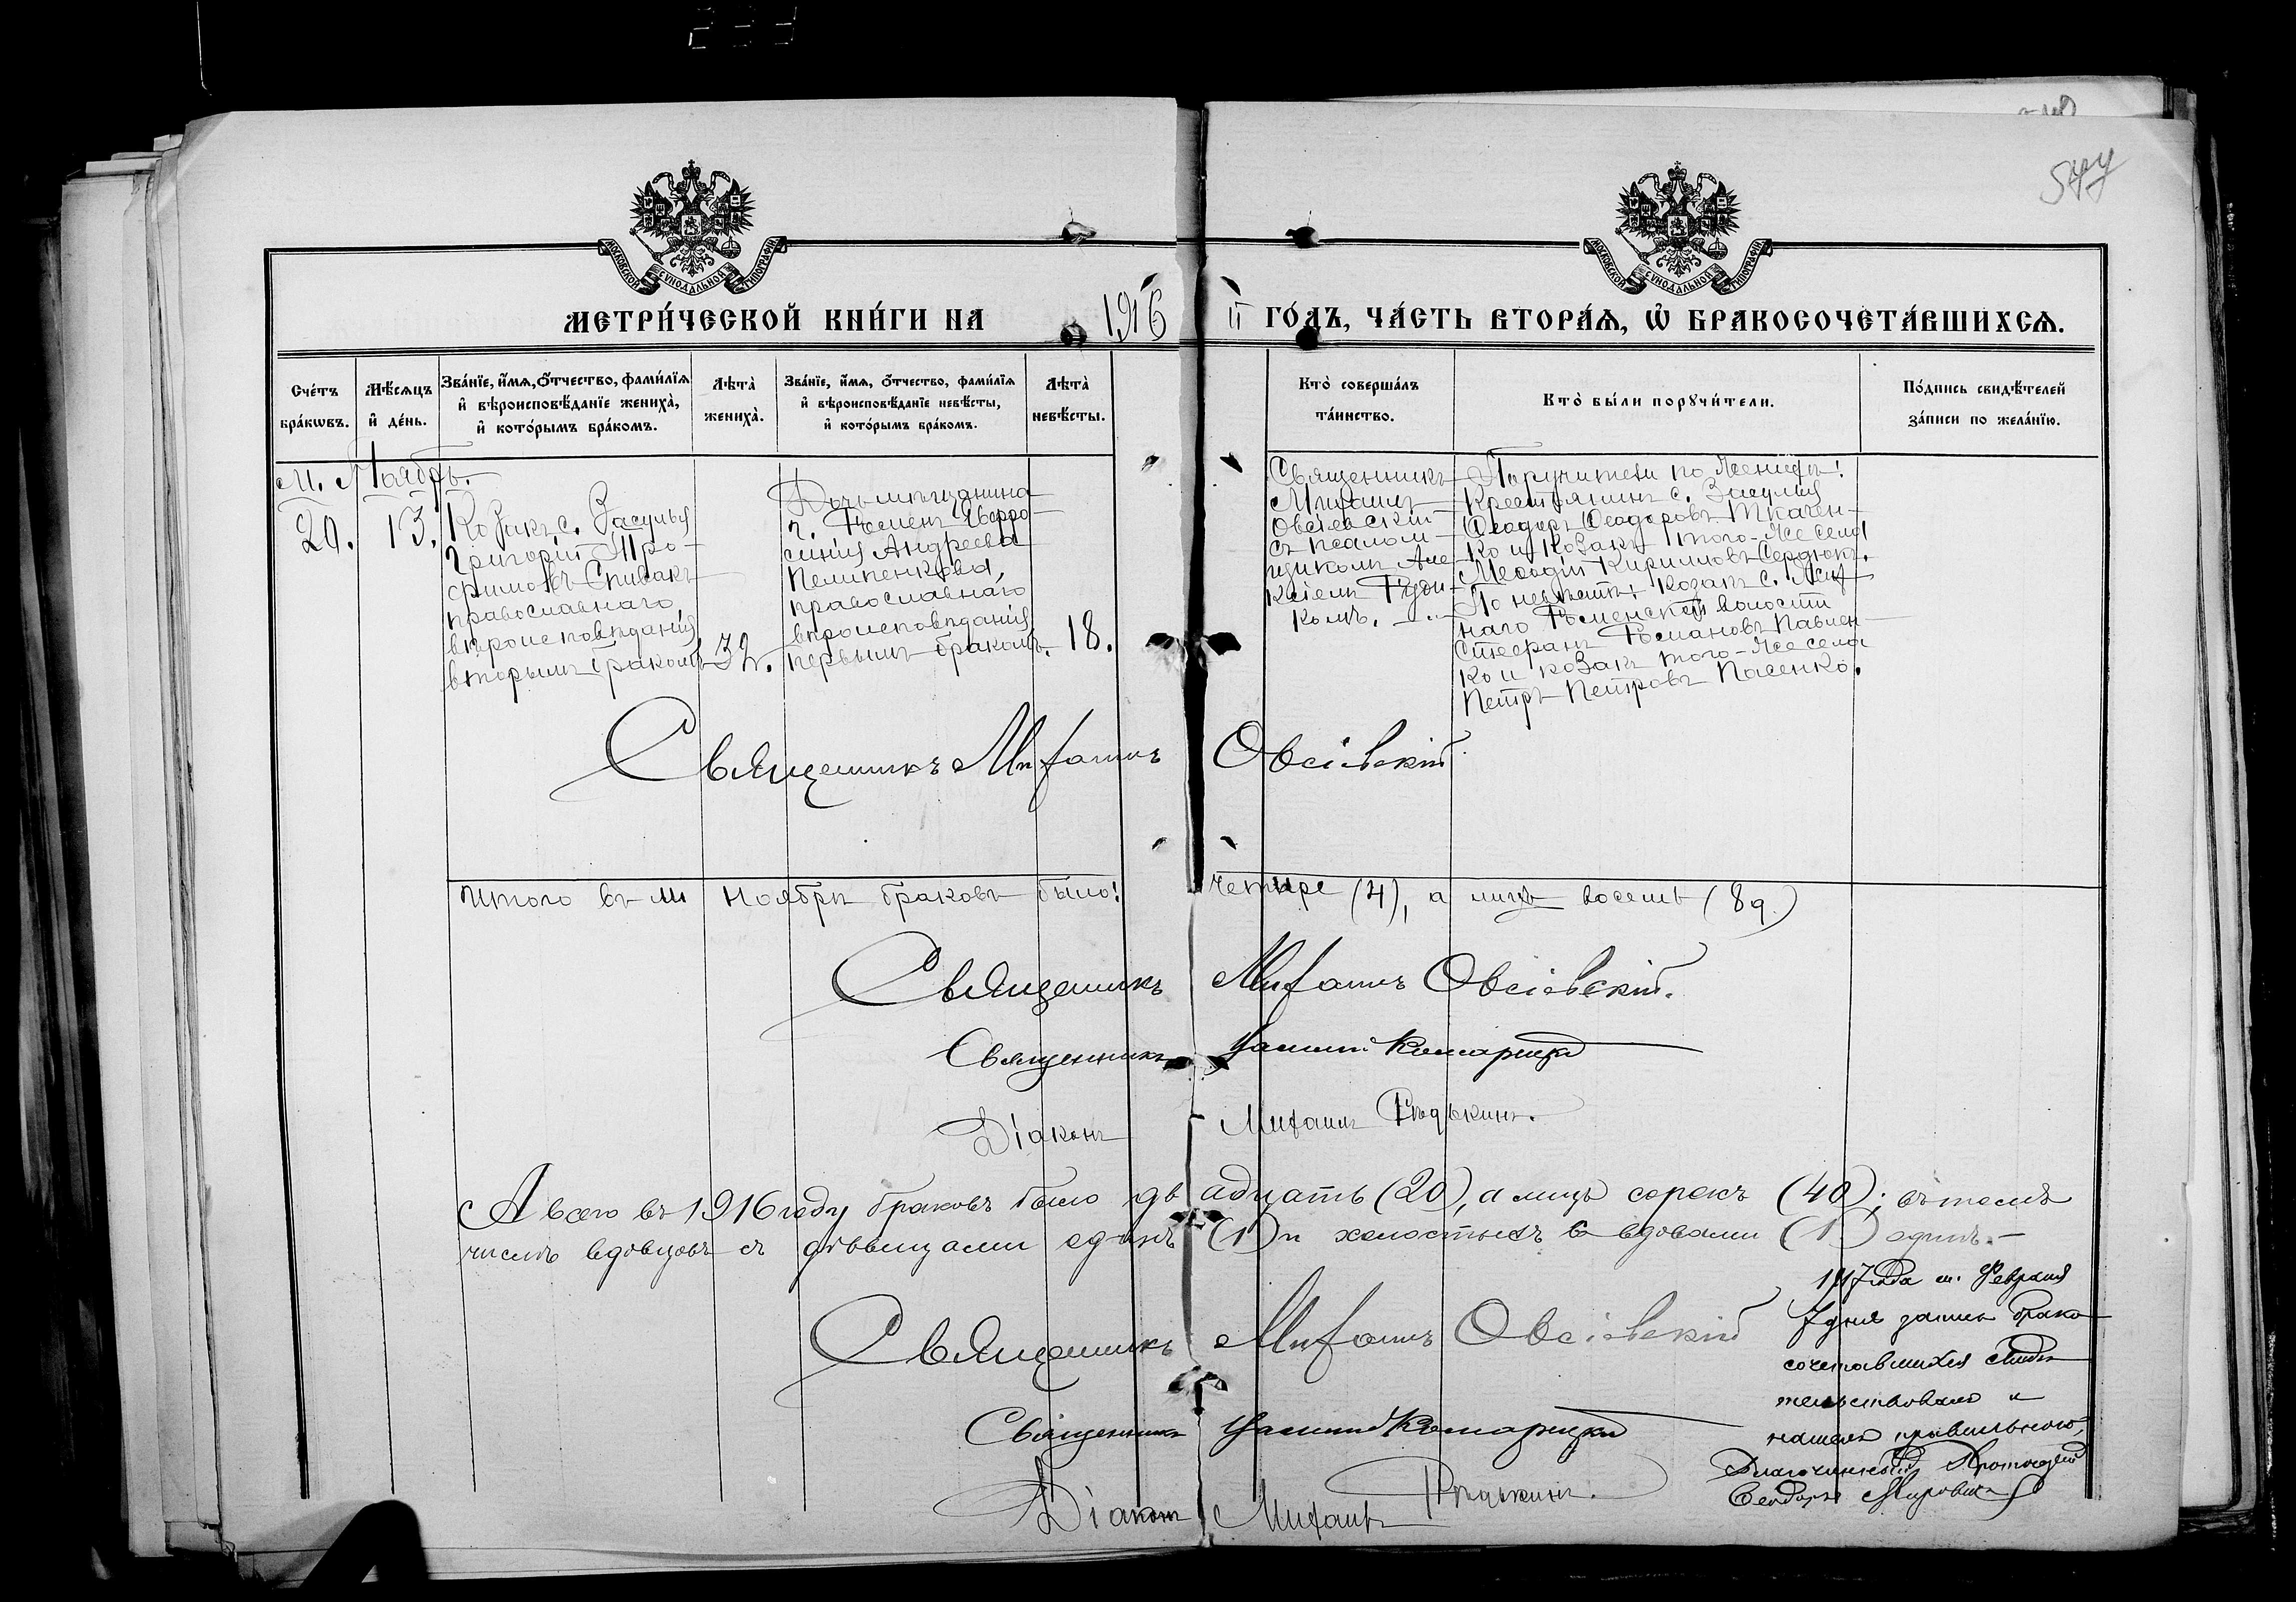 МЕТРИ́ЧЕСКОЙ КНИ́ГИ НА 1916 ГО́ДЪ, ЧА́СТЬ ВТОРА́Я, Ѿ БРАКОСОЧЕТА́ВШИХСѦ.
МОСКОВСКОЙ СѴНОДАЛЬНОЙ ТИПОГРАФІИ
МОСКОВСКОЙ СѴНОДАЛЬНОЙ ТИПОГРАФІИ
Сче́тъ
бра́кѡвъ.
Мѣ́сѧцъ
и҆ де́нь.
Зва́нїе, и҆́мѧ, ѻ҆́тчество, фами́лїѧ
и҆ вѣроисповѣ́данїе жениха̀,
и҆ кото́рымъ бра́комъ.
Лѣта̀
жениха̀.
Зва́нїе, и҆́мѧ, ѻ҆́тчество, фами́лїѧ
и҆ вѣроисповѣ́данїе невѣ́сты,
и҆ кото́рымъ бра́комъ.
Лѣта̀
невѣ́сты.
Кто̀ соверша́лъ
та́инство.
Кто̀ бы́ли порꙋчи́тели.
По́дпись свидѣ́телей
за́писи по жела́нїю.
М. Ноябрь.
20.
13.
Козакъ с. Засулья
Григорій Тро-
фимовъ Спивакъ
православнаго
вѣроисповѣданія
вторымъ бракомъ
32.
Дочь мѣщанина
г. Роменъ Евфро-
синія Андреева
Пелипенкова,
православнаго
вѣроисповѣданія
первымъ бракомъ.
18.
Священникъ
Михаилъ
Овсіевскій
съ псалом-
щикомъ Але-
ксіемъ Руди-
комъ.
Поручители по женихѣ:
Крестьянинъ с. Засулья
Ѳеодоръ Ѳеодоровъ Ткачен-
ко и козакъ того-же села
Меѳодій Кирилловъ Сердюкъ.
По невѣстѣ: козакъ с.
наго Роменской волости
Стефанъ Романовъ Павлен-
ко и козакъ того-же села
Петръ Петровъ Пасенко.
Священникъ Михаилъ Овсіевскій
Итого въ м Ноябрѣ браковъ было: четыре (4), а лицъ восемь (8)
Священникъ Михаилъ Овсіевскій.
Священникъ Комарицкій
Діаконъ Михаилъ Рѣдькинъ.
А всего въ 1916 году браковъ было двадцать (20), а лицъ сорокъ (40); въ томъ
числѣ вдовцовъ съ дѣвицами одинъ (1) и холостыхъ съ вдовами (1) одинъ.
Священникъ Михаилъ Овсіевскій
Священникъ Комарицкій
Діаконъ Михаилъ Рѣдькинъ.
1917 года м. Февраля
7 дня запись брако
сочетавшихся свидѣ
тельствовалъ и
нашелъ правильною,
Благочинный Протоіерей
Ѳеодоръ